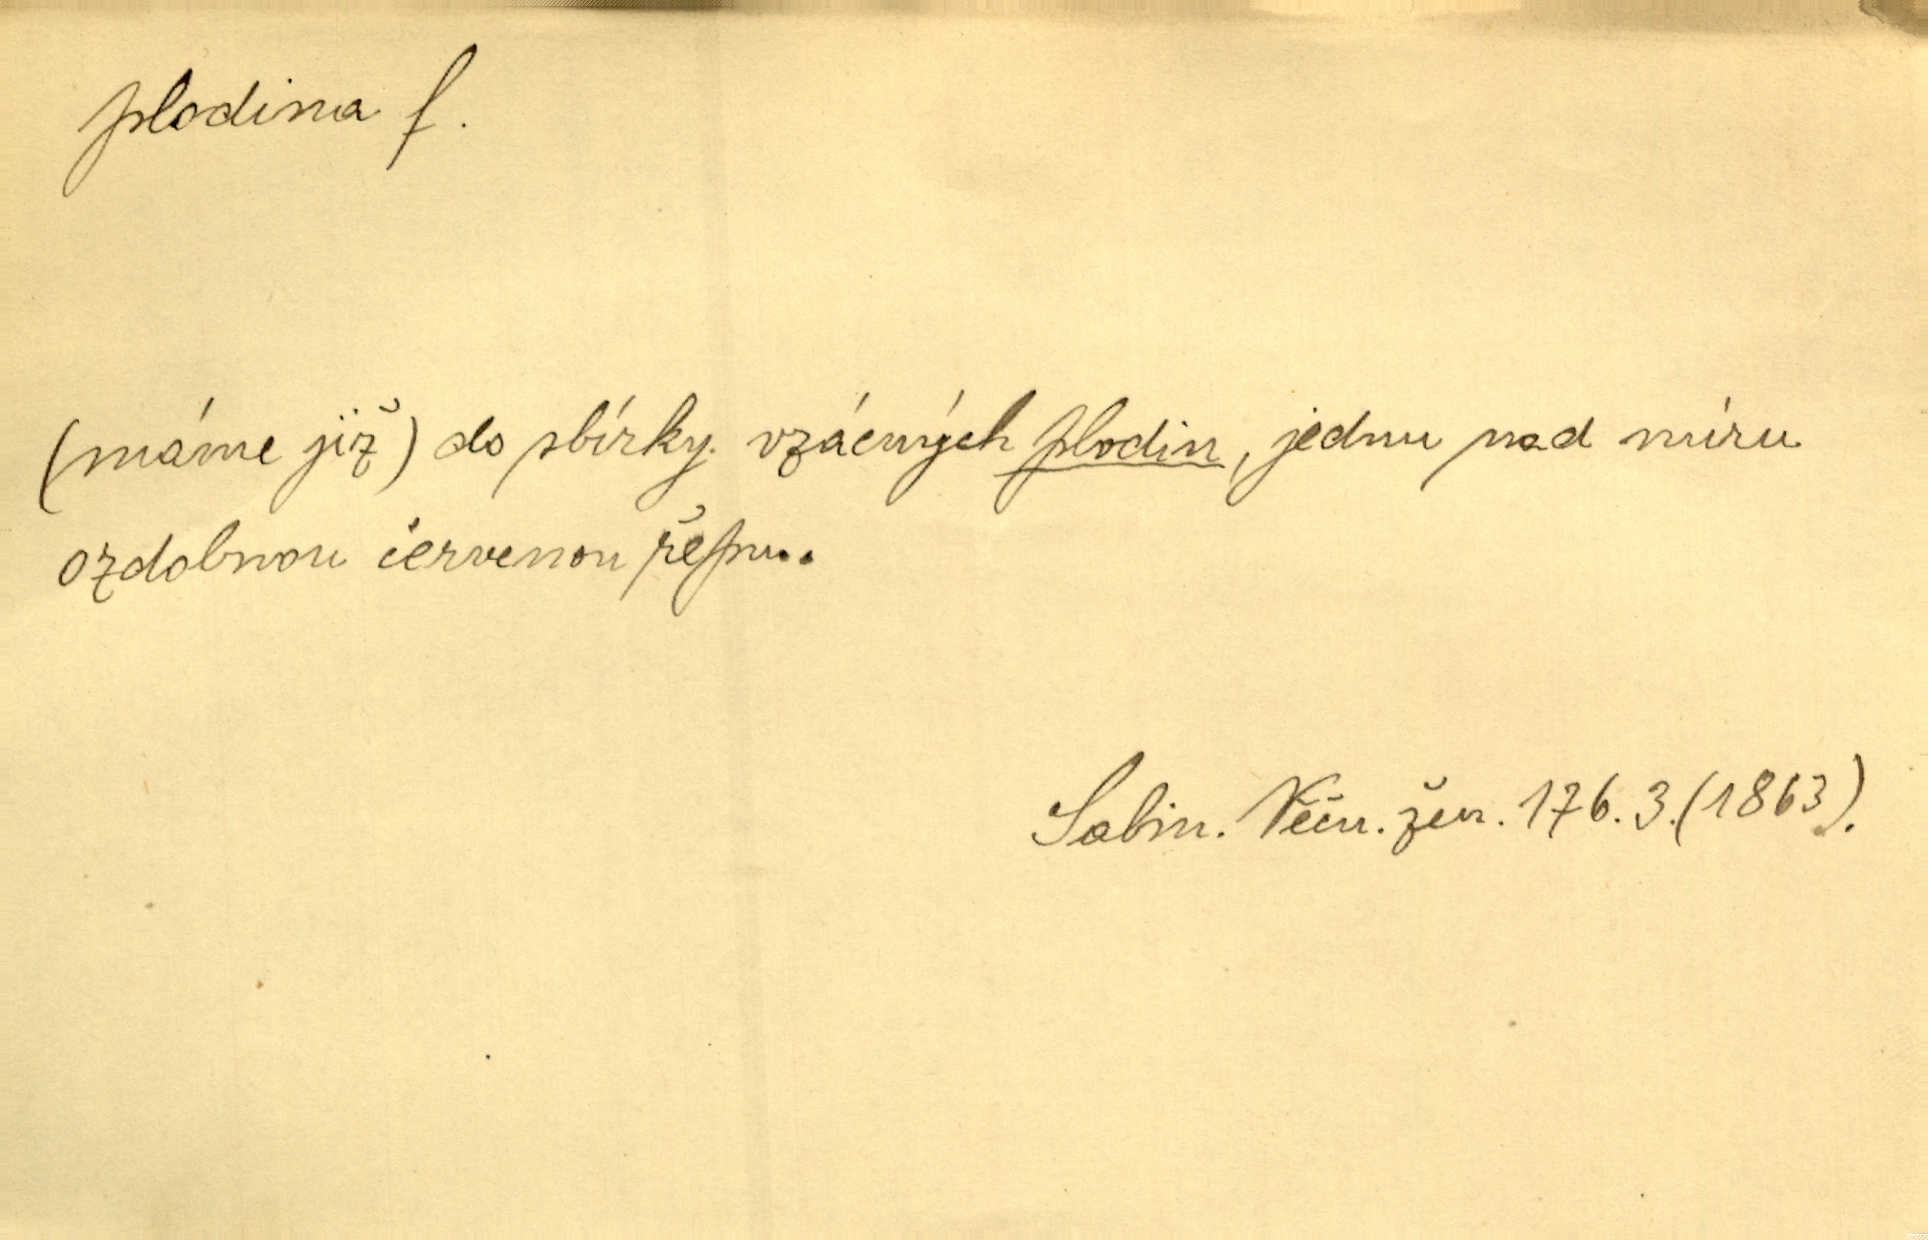 plodina f.
(máme již) do sbírky vzácných plodin, jednu nad míru
ozdobnou červenou řepu..
Sabin. Věčn. žen. 176. 3. (1863).